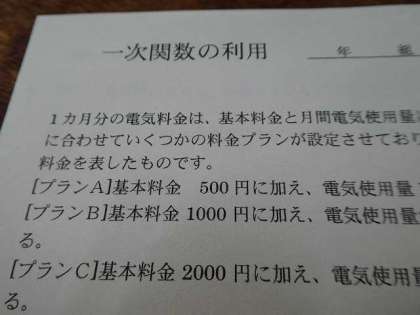 一次関数の利用
年 組
1カ月分の電気料金は、基本料金と月間電気使用量
に合わせていくつかの料金プランが設定させており
料金を表したものです。
[プランA]基本料金 500円に加え、電気使用量
[プランB]基本料金1000円に加え、電気使用量
る。
[プランC]基本料金2000円に加え、電気使用量
る。